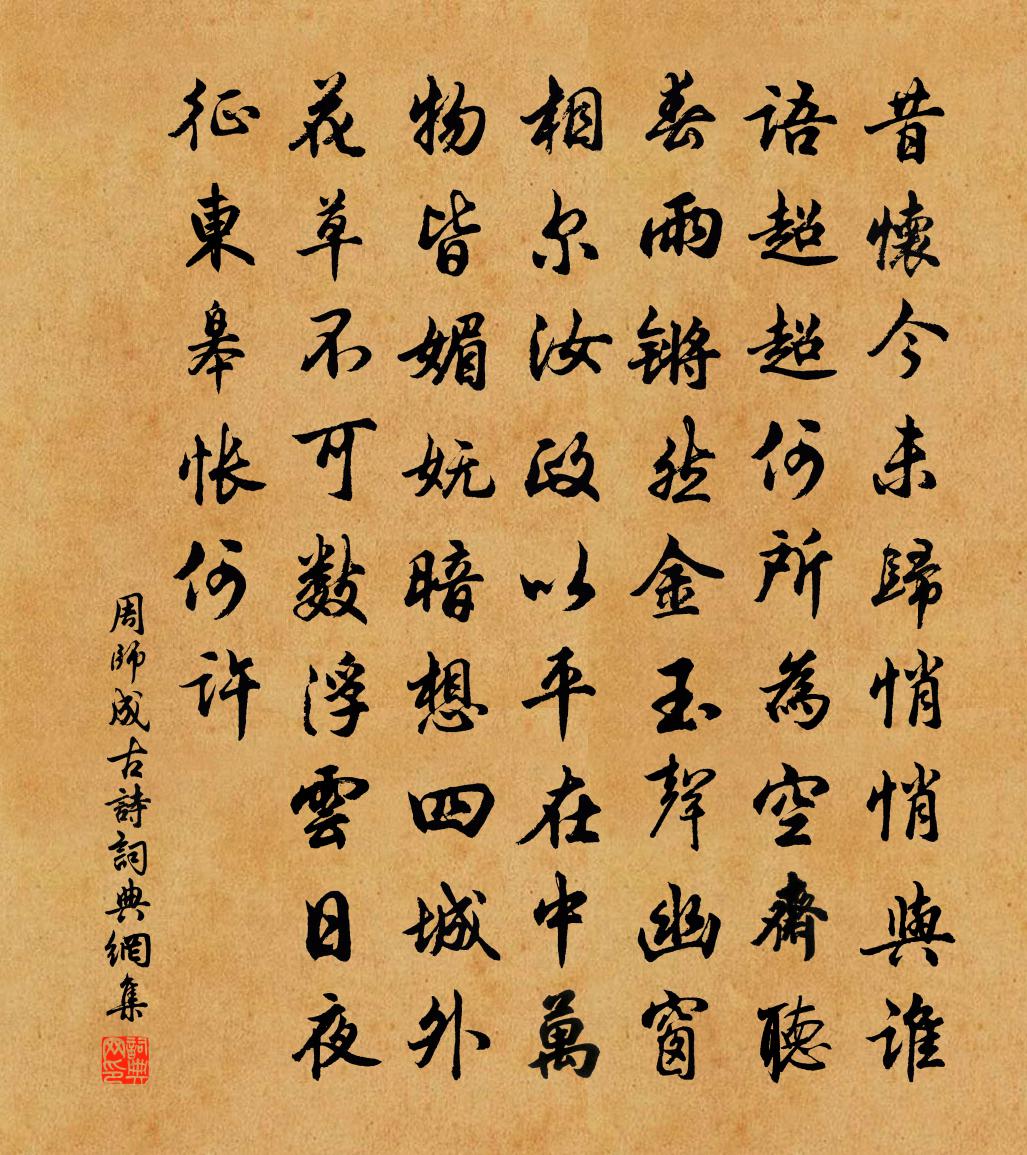 昔懷今未歸悄悄與谁
语超超何所為空齋聽
春雨锵然金玉聲幽窗
相尔汝政以平在中萬
物皆媚妩暗想四城外
花草不可数浮雲日夜
征東皋怅何许
周師成古詩詞典網集
詞典网印